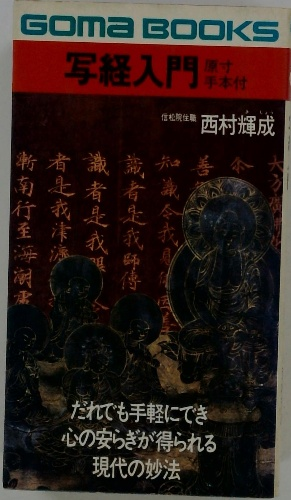 GOMA BOOKS
写経入門 原寸
手本付
信松院住職 西村輝成
大方廣
善
知識令我
識者是我師傅
識者是我眼
者是我津濟
漸南行至海潮處
だれでも手軽にでき
心の安らぎが得られる
現代の妙法